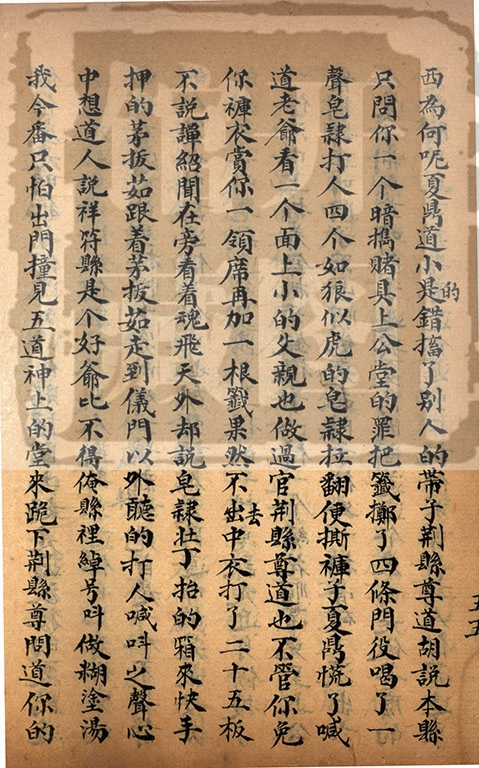 西為何呢夏鼎道小是的錯搐了别人的帶子荆縣尊道胡說本縣
只問你一个暗擕賭具上公堂的罪把籤擲了四條門役喝了一
聲皂隷打人四个如狼似虎的皂隷拉翻便撕褲子夏鼎慌了喊
道老爺看一个面上小的父親也做過官荆縣尊道也不管你免
你褲衣賞你一領席再加一根籤果然不出去中衣打了二十五板
不說譚紹聞在旁看着魂飛天外却說皂隷壮丁抬的箱來快手
押的茅扳茹跟着茅扳茹走到儀門以外聽的打人喊叫之聲心
中想道人説祥符縣是个好爺比不得俺縣裡綽号叫做糊塗湯
我今番只怕出門撞見五道神上的堂來跪下荆縣尊問道你的
五五